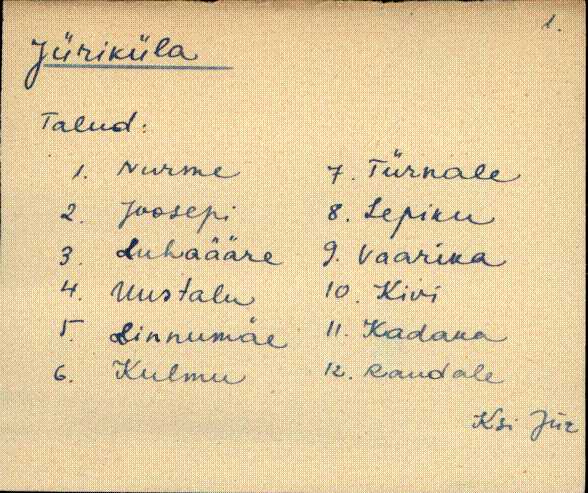 1.
Jüriküla
Talud:
1. Nurme
2. Joosepi
3. Luhaääre
4. Uustalu
5. Linnumäe
6. Kulmu
7. Türnale
8. Lepiku
9. Vaarika
10. Kivi
11. Kadaka
12. Raudale
Ksi Jür